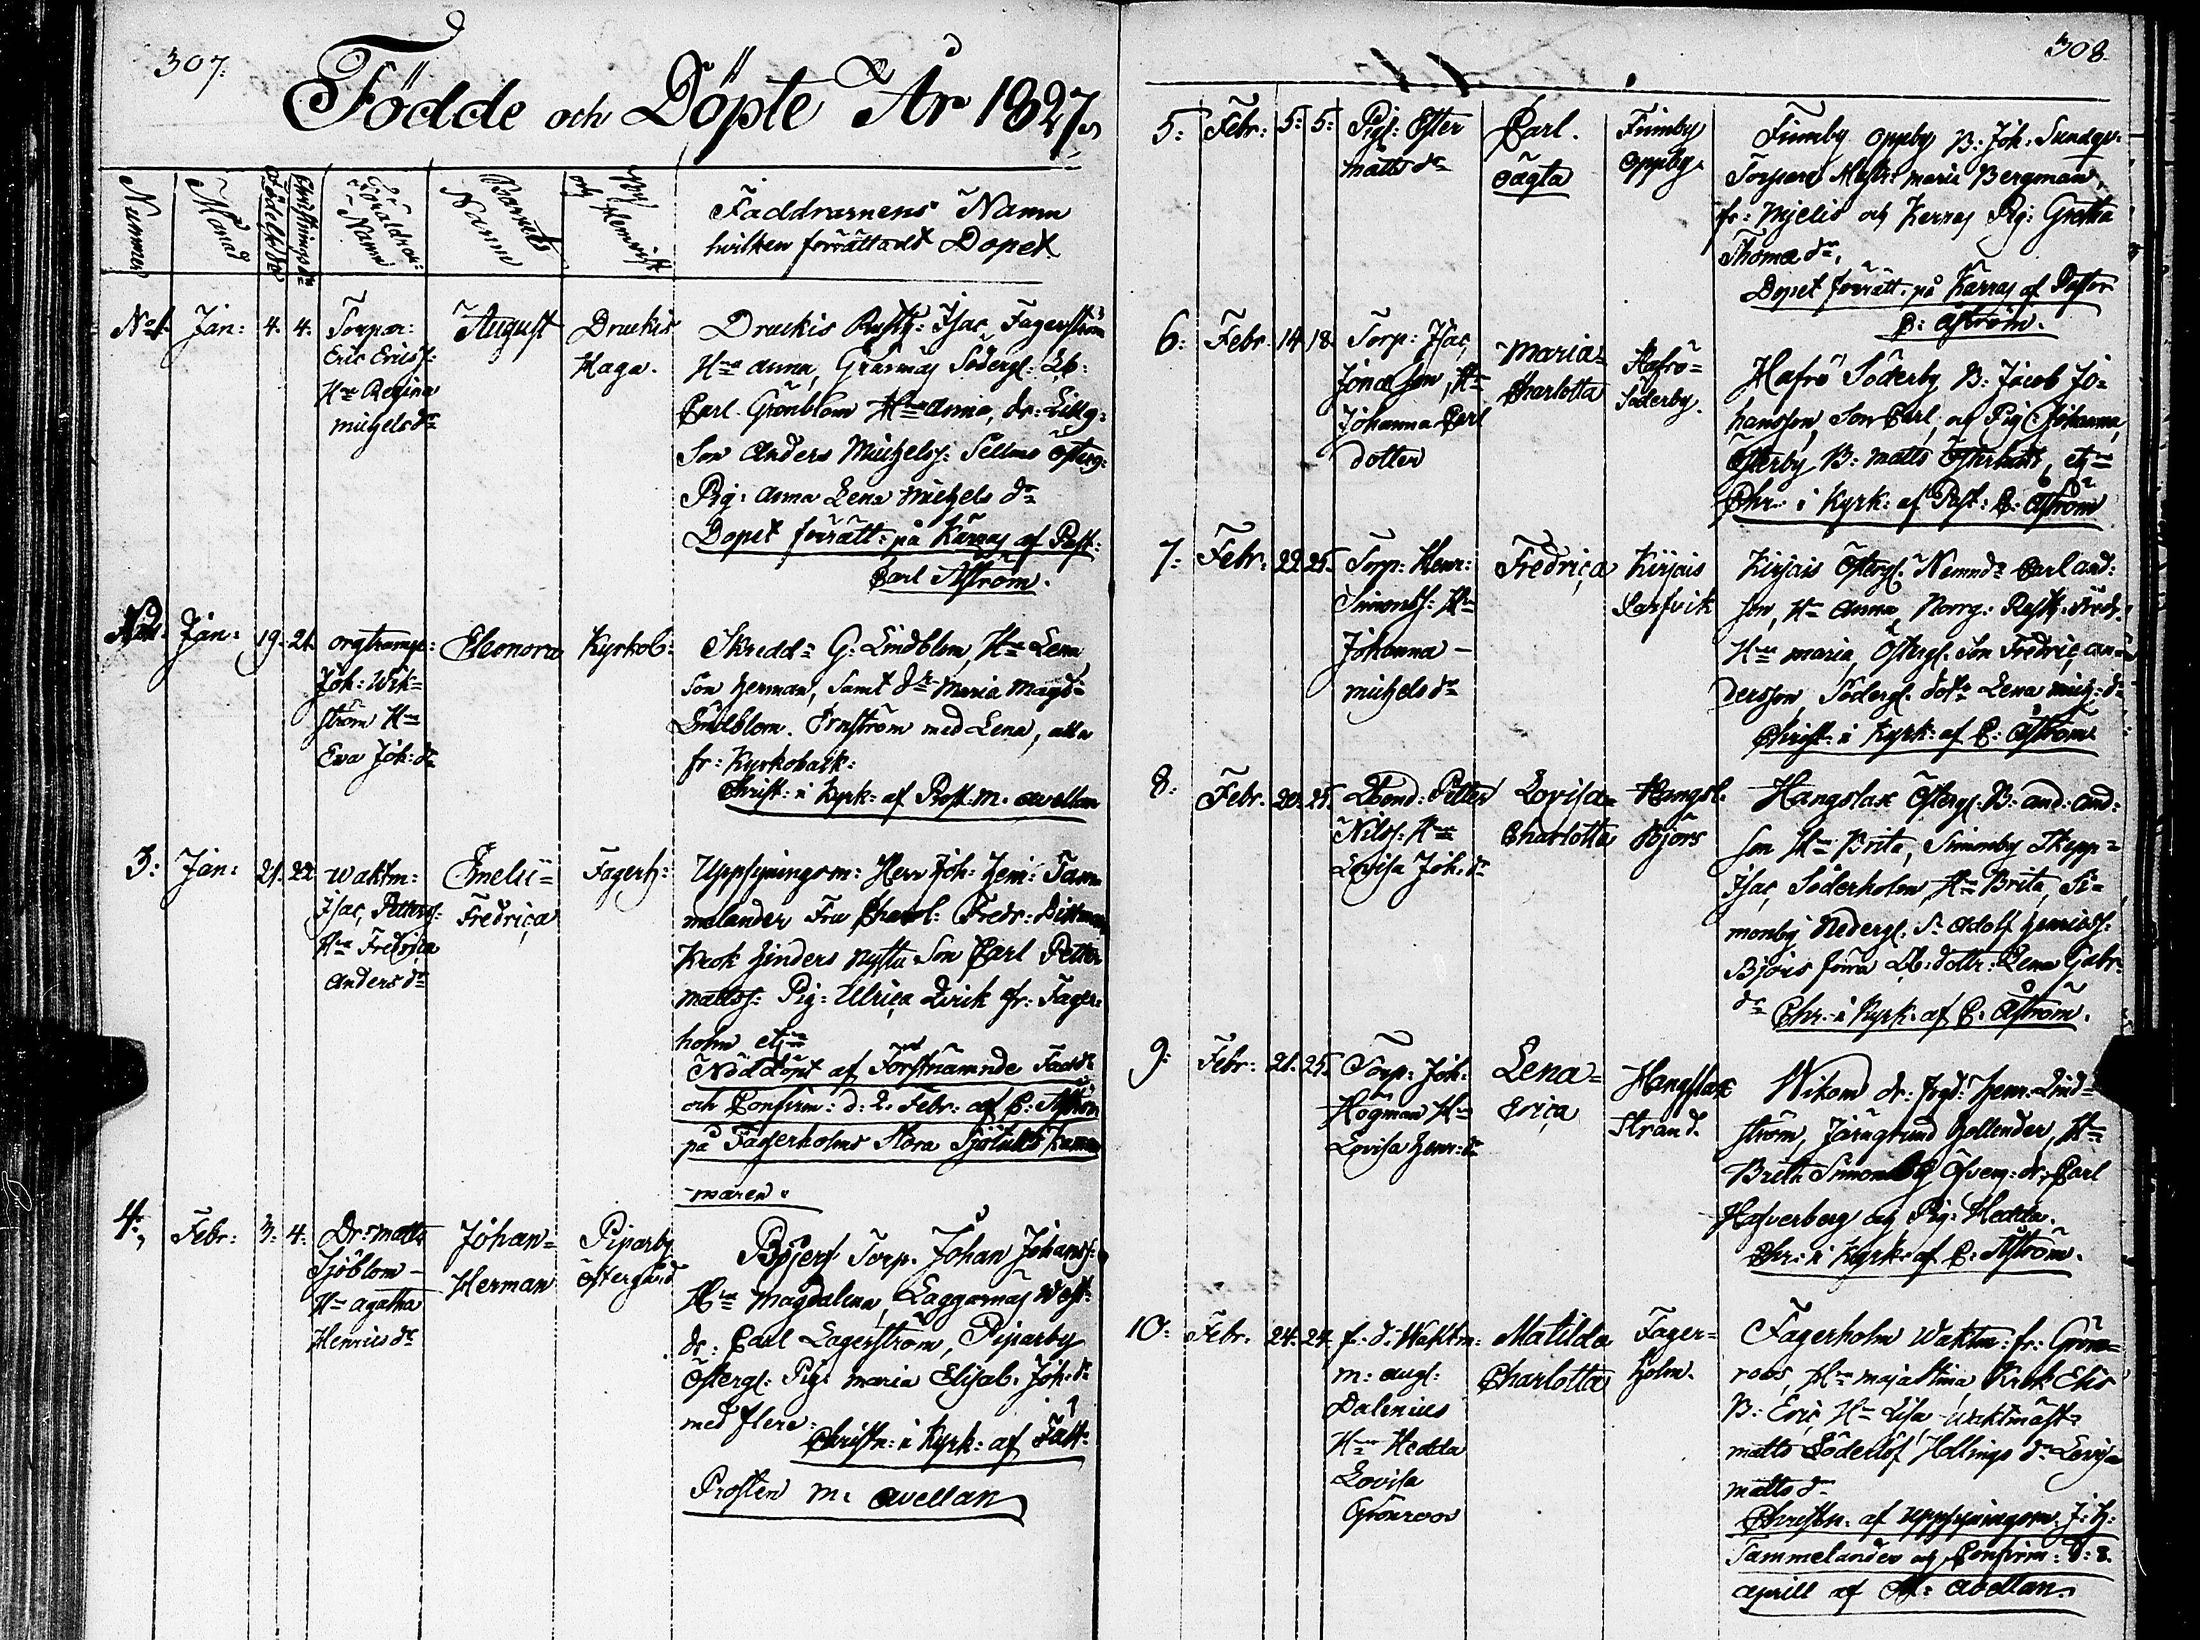 307.
Födde och Döpte År 1827.
Nummer
Månad
Födelse d:
Christnings d:
Föräldrar: Namn
Barnets Namn
By och Hemvist
Faddrarnens Namn
hvilken förrättadt Dopet
No 1. Jan: 4. 4.
Torpar:
Eric Ericss:
H:ru Regina
michels d:r
August
Druckis
Haga.
Druckis Rusth: Isac Fagerström
H:ru anna, Gräsnäs Södergl: Lb:
Carl Grönblom H:ru anna, dr:
Son Anders Michelss: Östeng:
Pig: anna Lena michels d:r
Dopet förrätt: på Kärras af Past:
Carl Åström.
Jan: 19. 21.
orgtramp:
Joh: Wik=
ström H:ru
Eva Joh: d:r
Eleonora
Kyrkob:
Skredd:r G: Lindblom, H:ru Lena
Son Herman, samt d:r Maria Magd:
Lindblom. Örnström med Lena, alla
fr: Kyrkoback:
Christ: i Kyrk: af Prost: M. Avellan
3: Jan: 21. 22.
Waktm:
Isac Petterss:
H:ru Fredrica
Anders d:r
Emelii=
Fredrica
Fagerh:
Uppsyningsm: Herr Joh: Hein: Tam
melander Fru Charl: Fredr: Dittman
Krok Hinders Nystu Son Carl Petter
mattss: Pig: Ulrica Qvick fr: Fager:
holm etc
Nöddöpt af Förstnämnde Fadd:
och Confirm: d: 2. Febr: af C: Åström
på Fagerholms Stora Sjötulls Kam
maren.
4. Febr: 3. 4.
Dr: matts
Sjöblom
H:ru agatha
Henrics d:r
Johan=
Herman
Piparby
Östergård
Böjers Torp. Johan Johanss:
H:ru Magdalena, Laggarnäs West:
dr: Carl Lagerström, Piparby
Östergl: Pig: maria Elisab: Joh: d:r
med flere:
Christn: i Kyrk: af
Prosten M: Avellan
308.
5: Febr: 5: 5:
Pig: Ester
matts d:r
Carl.
oägta
Finnby
oppby.
Finnby oppby B: Joh: Sundqv:
Torpare Maria Bergman,
fr: Mjelis och Kerras Pig: Gretha
Thomæ d:r,
Dopet förrätt: på Kärras af Pastor
C: Åström.
6: Febr. 14. 18.
Torp: Isac
Jonasson, H:ru
Johanna Carl
dotter
Maria=
Charlotta
Hafrö=
Söderby.
Hafrö Söderby B: Jacob Jo=
hansson, Son Carl, och Pig Johanna,
Österby B: matts Österlund, etc
Chr: i Kyrk: af Past: C: Åström
7: Febr: 22. 25.
Torp: Henr:
Simonss: H:ru
Johanna –
michels d:r
Fredrica
Kirjais
Larfvik
Kirjais Östergl: Nämnd: Carl and:
son, H:ru Anna, Norrg:
H:ru maria, Östergl. Son Fredric an=
dersson, Södergl. dot:r Lena mich: d:r
Christ: i Kyrk: af C: Åström
8. Febr. 20. 25.
Lbond: Petter
Nilss: H:ru
Lovisa Joh: d:r
Lovisa=
Charlotta
Hangsl.
Björs
Hangslax Östergl. B: and: and:
son H:ru Brita, Simonby Skepp=
Isac Söderholm, H:ru Brita, Si=
monby Nedergl. S: Adolf Henricss:
Björs förra Lb: dottr: Lena Gabr:
d:r Chr: i Kyrk: af C: Åström.
9: Febr: 21. 25.
Torp: Joh:
Högman H:ru
Lovisa Henr: d:r
Lena=
Erica
Hangslax
Strand.
Wikom dr: fogd: Henr: Lind=
ström, Järngrund Hollender, H:ru
Breth Simonby Öfverg: dr: Carl
Hafverberg och Pig: Hedda.
Chr: i Kyrk: af C: Åström.
10: Febr. 24. 24.
f. d: Waktm:
m: augl:
Dalenius
H:ru Hedda
Lovisa
Grönroos
Matilda
Charlotta
Fager=
holm.
Fagerholm Waktm: fr: Grön=
roos, H:ru maja Stina, Krok Ehrs
B: Eric H:ru Lisa Waktmäst:
matts Söderlöf, Hollings d:r Lovisa
matts d:r
Christn. af Uppsyningsm. J: H:
Tammelander och Confirm: d: 8.
Aprill af M: Avellan.